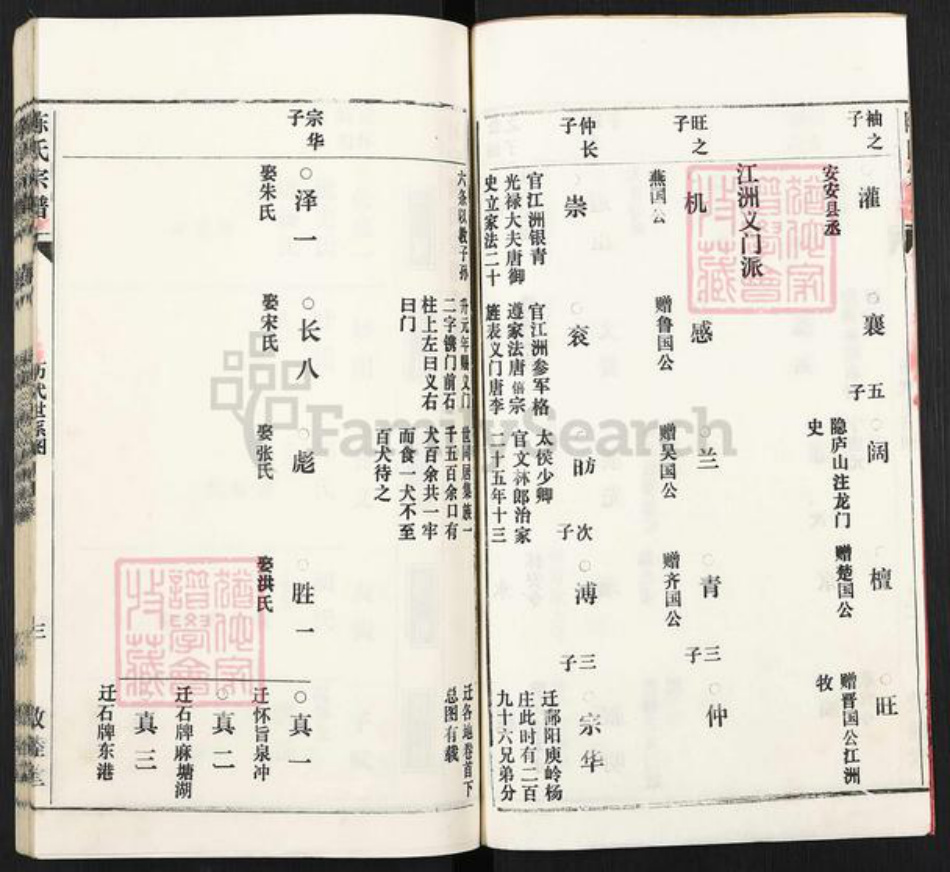 袖之子
灌
安安县丞
襄
五子
阔
隐庐山注龙门
史
檀
赠楚国公
旺
赠晋国公江洲
牧
江洲义门派
旺之子
机
燕国公
感
赠鲁国公
兰
赠吴国公
青
赠齐国公
三子
仲
仲长子
崇
官江洲银青
光禄大夫唐御
史立家法二十
六条以教子孙
衮
官江洲参军格
遵家法唐僖宗
旌表义门唐李
升元年赐义门
二字镌门前石
柱上左曰义右
曰门
昉
太侯少卿
官文林郎治家
二十五年十三
世同居集族一
千五百余口有
犬百余共一牢
而食一犬不至
百犬待之
次子
溥
三子
宗华
迁鄱阳庾岭杨
庄此时有二百
九十六兄弟分
迁各地卷首下
总图有载
宗华子
泽一
娶朱氏
长八
娶宋氏
彪
娶张氏
胜一
娶洪氏
真一
迁怀旨泉冲
真二
迁石牌麻塘湖
真三
迁石牌东港
陈氏宗谱
历代世系图
三
敦睦堂
FamilySearch